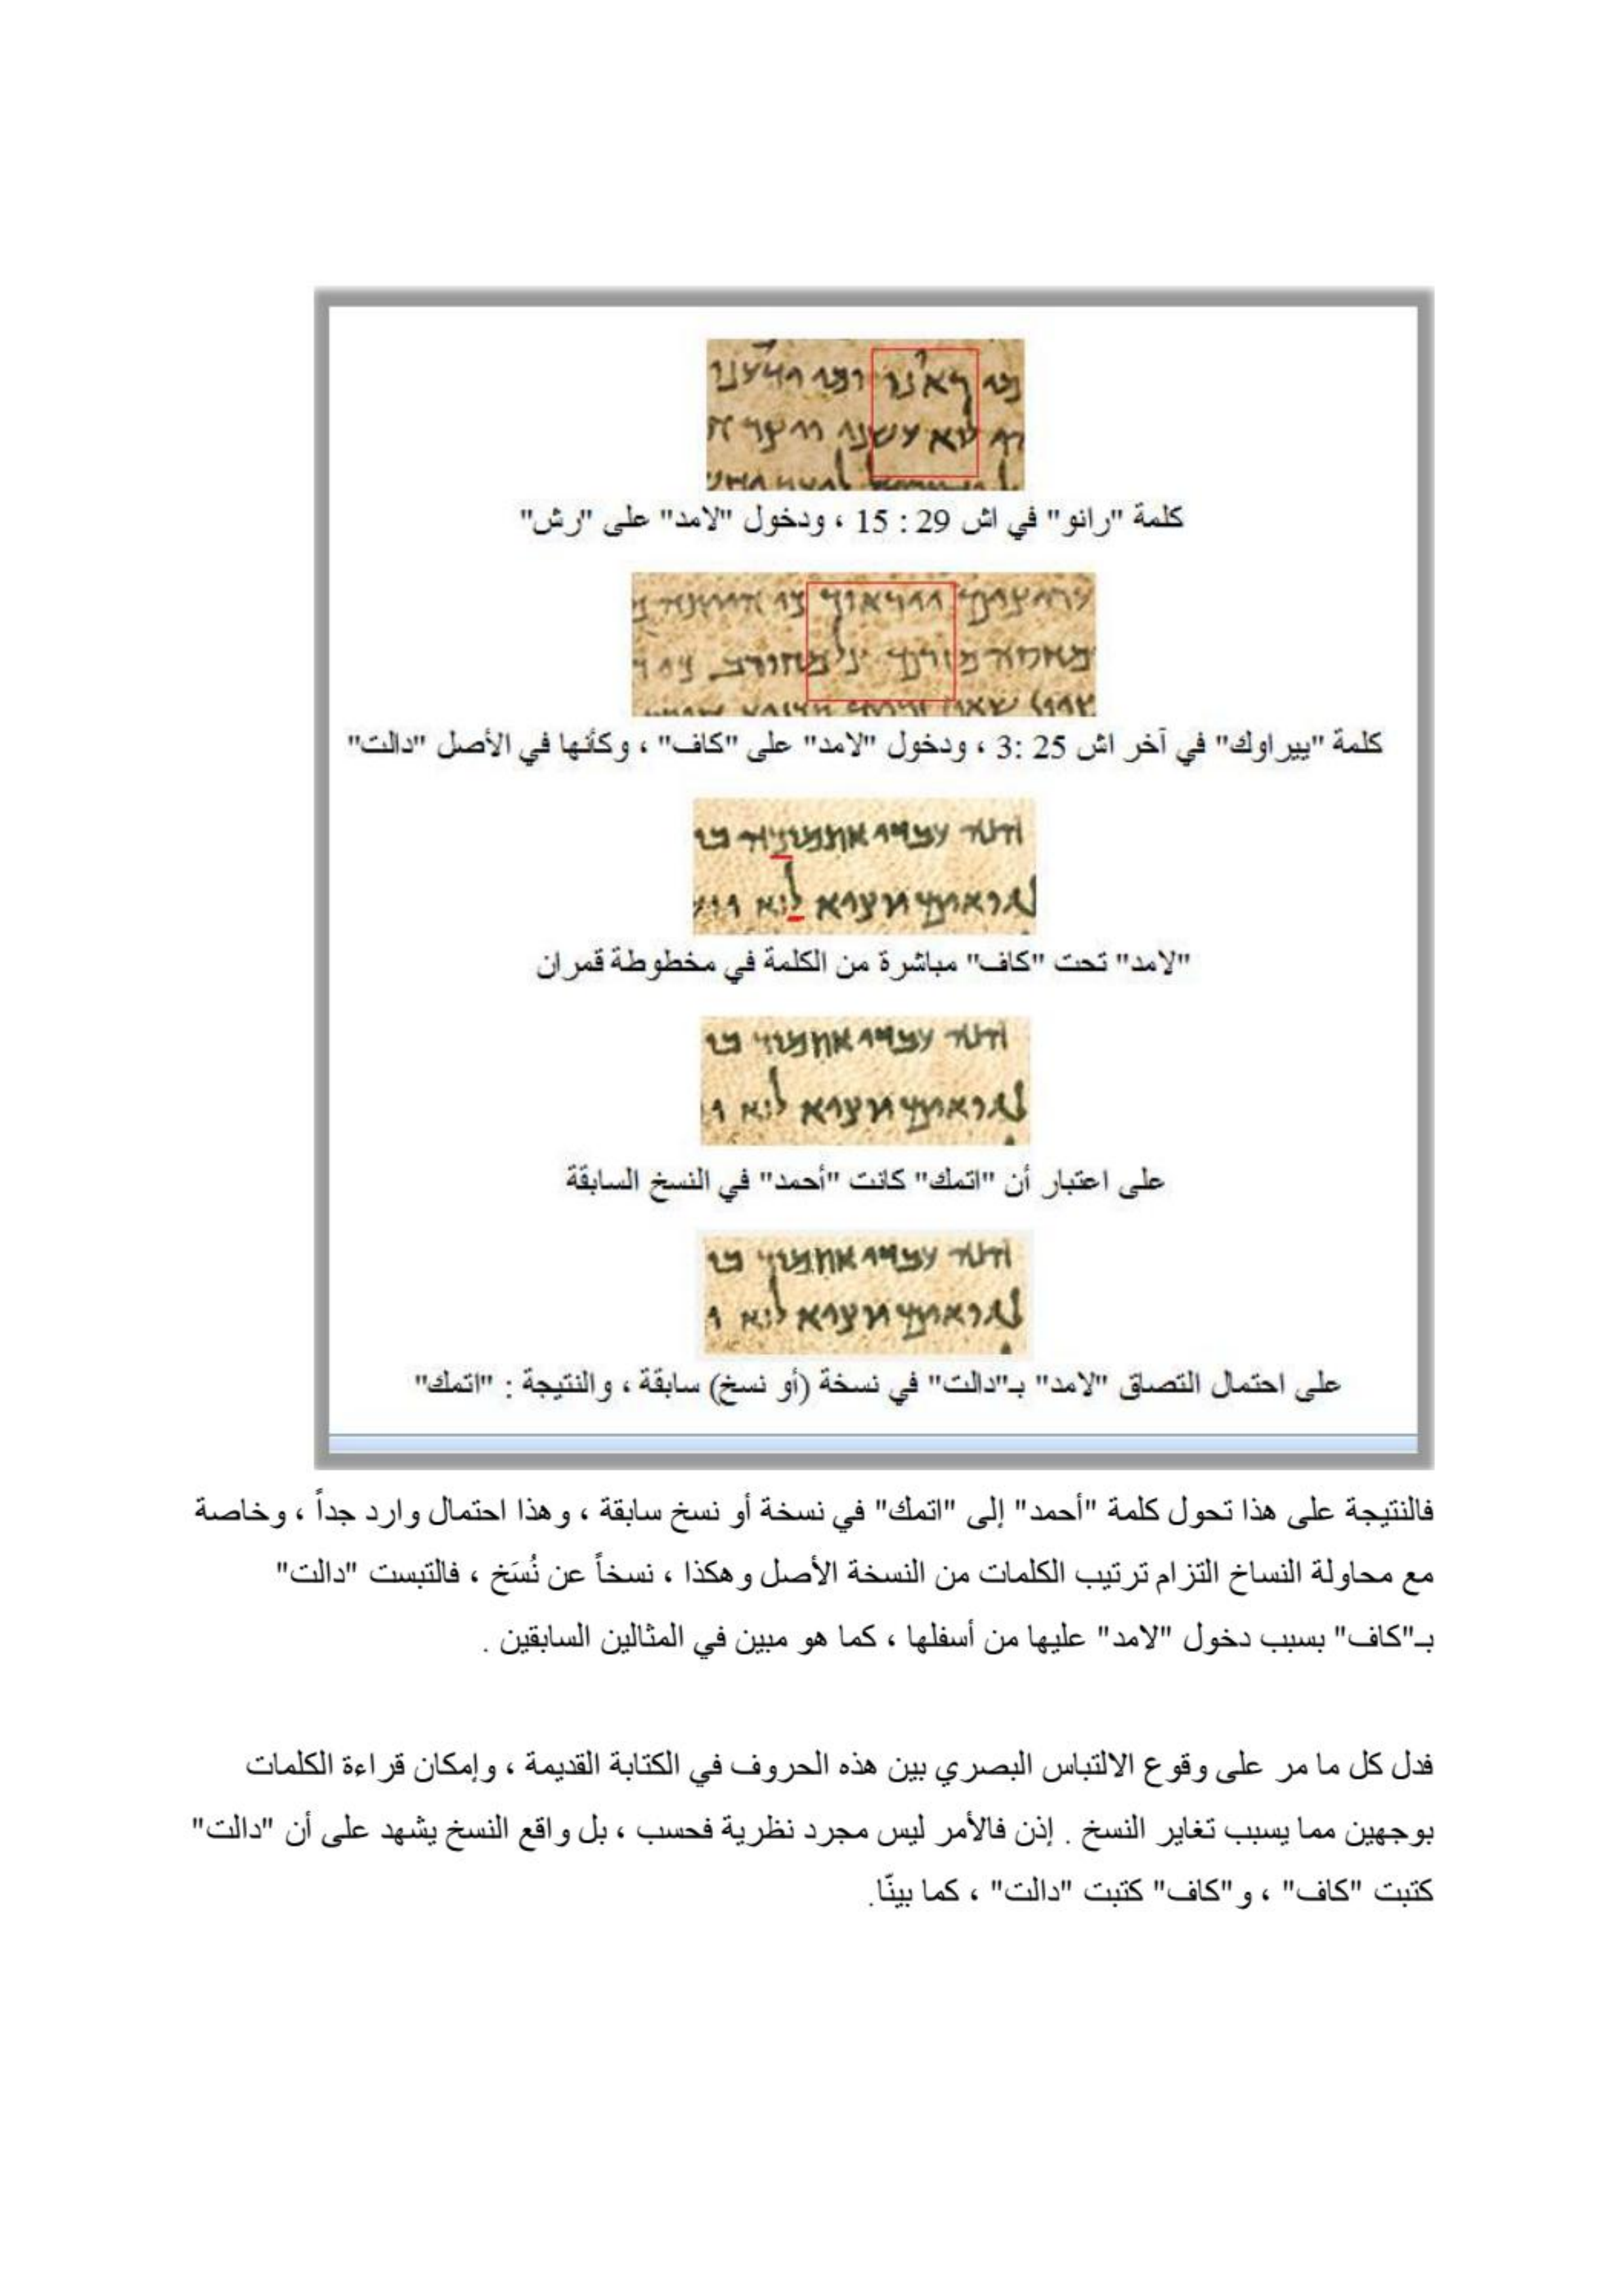 كلمة "رانو" في اش 29 : 15 ، ودخول "لامد" على "رش"
كلمة "ييراوك" في آخر اش 25 :3 ، ودخول "لامد" على "كاف" ، وكأنها في الأصل "دالت"
"لامد" تحت "كاف" مباشرة من الكلمة في مخطوطة قمران
على اعتبار أن "اتمك" كانت "أحمد" في النسخ السابقة
على احتمال التصاق "لامد" بـ"دالت" في نسخة (أو نسخ) سابقة ، والنتيجة : "اتمك"
فالنتيجة على هذا تحول كلمة "أحمد" إلى "اتمك" في نسخة أو نسخ سابقة ، وهذا احتمال وارد جداً ، وخاصة
مع محاولة النساخ التزام ترتيب الكلمات من النسخة الأصل وهكذا ، نسخاً عن نُسَخ ، فالتبست "دالت"
بـ"كاف" بسبب دخول "لامد" عليها من أسفلها ، كما هو مبين في المثالين السابقين .
فدل كل ما مر على وقوع الالتباس البصري بين هذه الحروف في الكتابة القديمة ، وإمكان قراءة الكلمات
بوجهين مما يسبب تغاير النسخ . إذن فالأمر ليس مجرد نظرية فحسب ، بل واقع النسخ يشهد على أن "دالت"
كتبت "كاف" ، و"كاف" كتبت "دالت" ، كما بينّا.